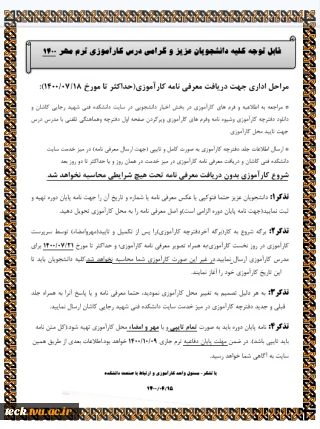 قابل توجه کلیه دانشجویان عزیز و گرامی درس کارآموزی ترم مهر ۱۴۰۰
مراحل اداری جهت دریافت معرفی نامه کارآموزی(حداکثر تا مورخ ۱۴۰۰/۰۷/۱۸):
* مراجعه به اطلاعیه و فرم های کارآموزی در بخش اخبار دانشجویی در سایت دانشکده فنی شهید رجایی کاشان و
دانلود دفترچه کارآموزی وشیوه نامه وفرم های کارآموزی وپرکردن صفحه اول دفترچه وهماهنگی تلفنی با مدرس درس
جهت تایید محل کارآموزی
* ارسال اطلاعات جلد دفترچه کارآموزی به صورت کامل و تایپی (جهت ارسال معرفی نامه) در میز خدمت سایت
دانشکده فنی کاشان و دریافت معرفی نامه کارآموزی در میز خدمت در همان روز و یا حداکثر تا دو روز بعد
شروع کارآموزی بدون دریافت معرفی نامه تحت هیچ شرایطی محاسبه نخواهد شد
تذکر۱: دانشجویان عزیز حتما فتوکپی یا عکس معرفی نامه یا شماره و تاریخ آن را جهت نامه پایان دوره تهیه و
ثبت نمایید(جهت نامه پایان دوره الزامی است)و اصل معرفی نامه را به محل کارآموزی تحویل دهید.
تذکر۲: برگه شروع به کار(برگه آخردفترچه کارآموزی)را پس از تکمیل و تایید(مهروامضاء) توسط سرپرست
کارآموزی در روز نخست کارآموزی،به همراه تصویر معرفی نامه کارآموزی،و حداکثر تا مورخ ۱۴۰۰/۰۷/۲۱ برای
مدرس کارآموزی ارسال نمایید.در غیر این صورت کارآموزی شما محاسبه نخواهد شد.کلیه دانشجویان باید تا
این تاریخ کارآموزی خود را آغاز نمایند.
تذکر۳: به هر دلیل تصمیم به تغییر محل کارآموزی نمودید، حتما معرفی نامه و یا پاسخ آنرا به همراه جلد
قبلی و جدید دفترچه کارآموزی در میز خدمت سایت دانشکده فنی شهید رجایی کاشان ارسال نمایید.
تذکر۴: نامه پایان دوره باید به صورت تمام تایپی و با مهر و امضاء محل کارآموزی تهیه شود(کل متن نامه
باید تایپی باشد). در ضمن مهلت پایان دفاعیه ترم جاری ۱۴۰۰/۱۰/۰۹ خواهد بود.اطلاعات بعدی از طریق همین
سایت به آگاهی شما خواهد رسید.
با تشکر - مسئول واحد کارآموزی و ارتباط با صنعت دانشکده
۱۴۰۰/۰۶/۱۵
teck.tvu.ac.ir